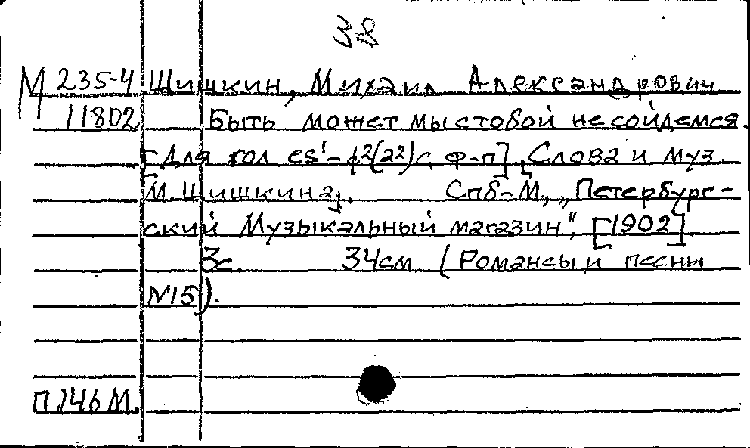 38
М 235-4 Шишкин, Михаил Александрович
11802 Быть может мы с тобой не сойдемся.
[Для гол es¹-f²(a²) с ф-п]. [Слова и муз.
М. Шишкина]. Спб-М., „Петербург-
ский Музыкальный магазин", [1902]
3с. 34см (Романсы и песни
N15).
П 146 М.